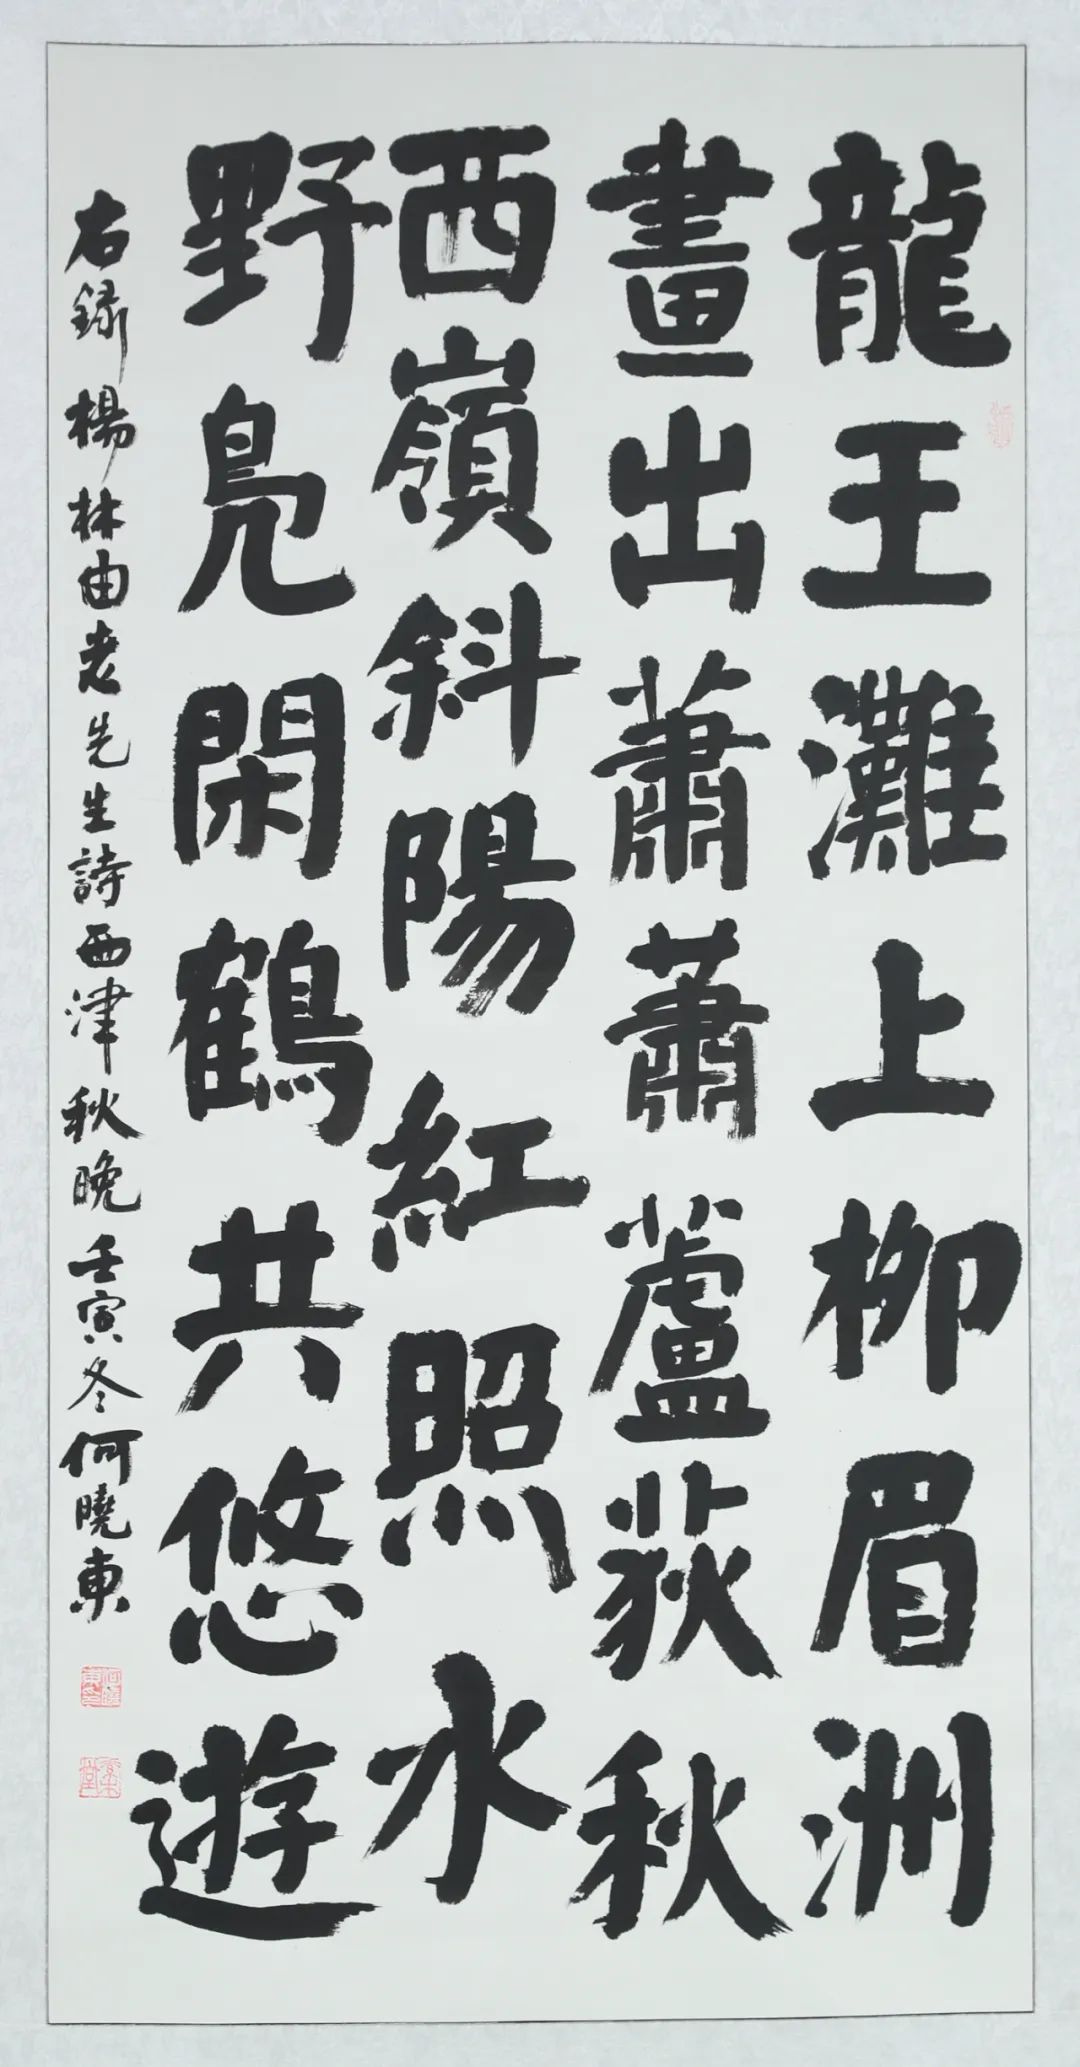 龍王灘上柳眉洲
畫出蕭蕭蘆荻秋
西嶺斜陽紅照水
野鳧閑鶴共悠遊
右錄楊林由老先生詩西津秋晚壬寅冬何曉東